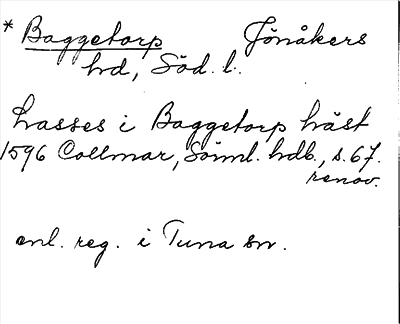 * Baggetorp Jönåkers
hd, Söd. l.
Lasses i Baggetorp häst
1596 Collmar, Söml. hdb., s. 67.
renov.
enl. reg. i Tuna sn.